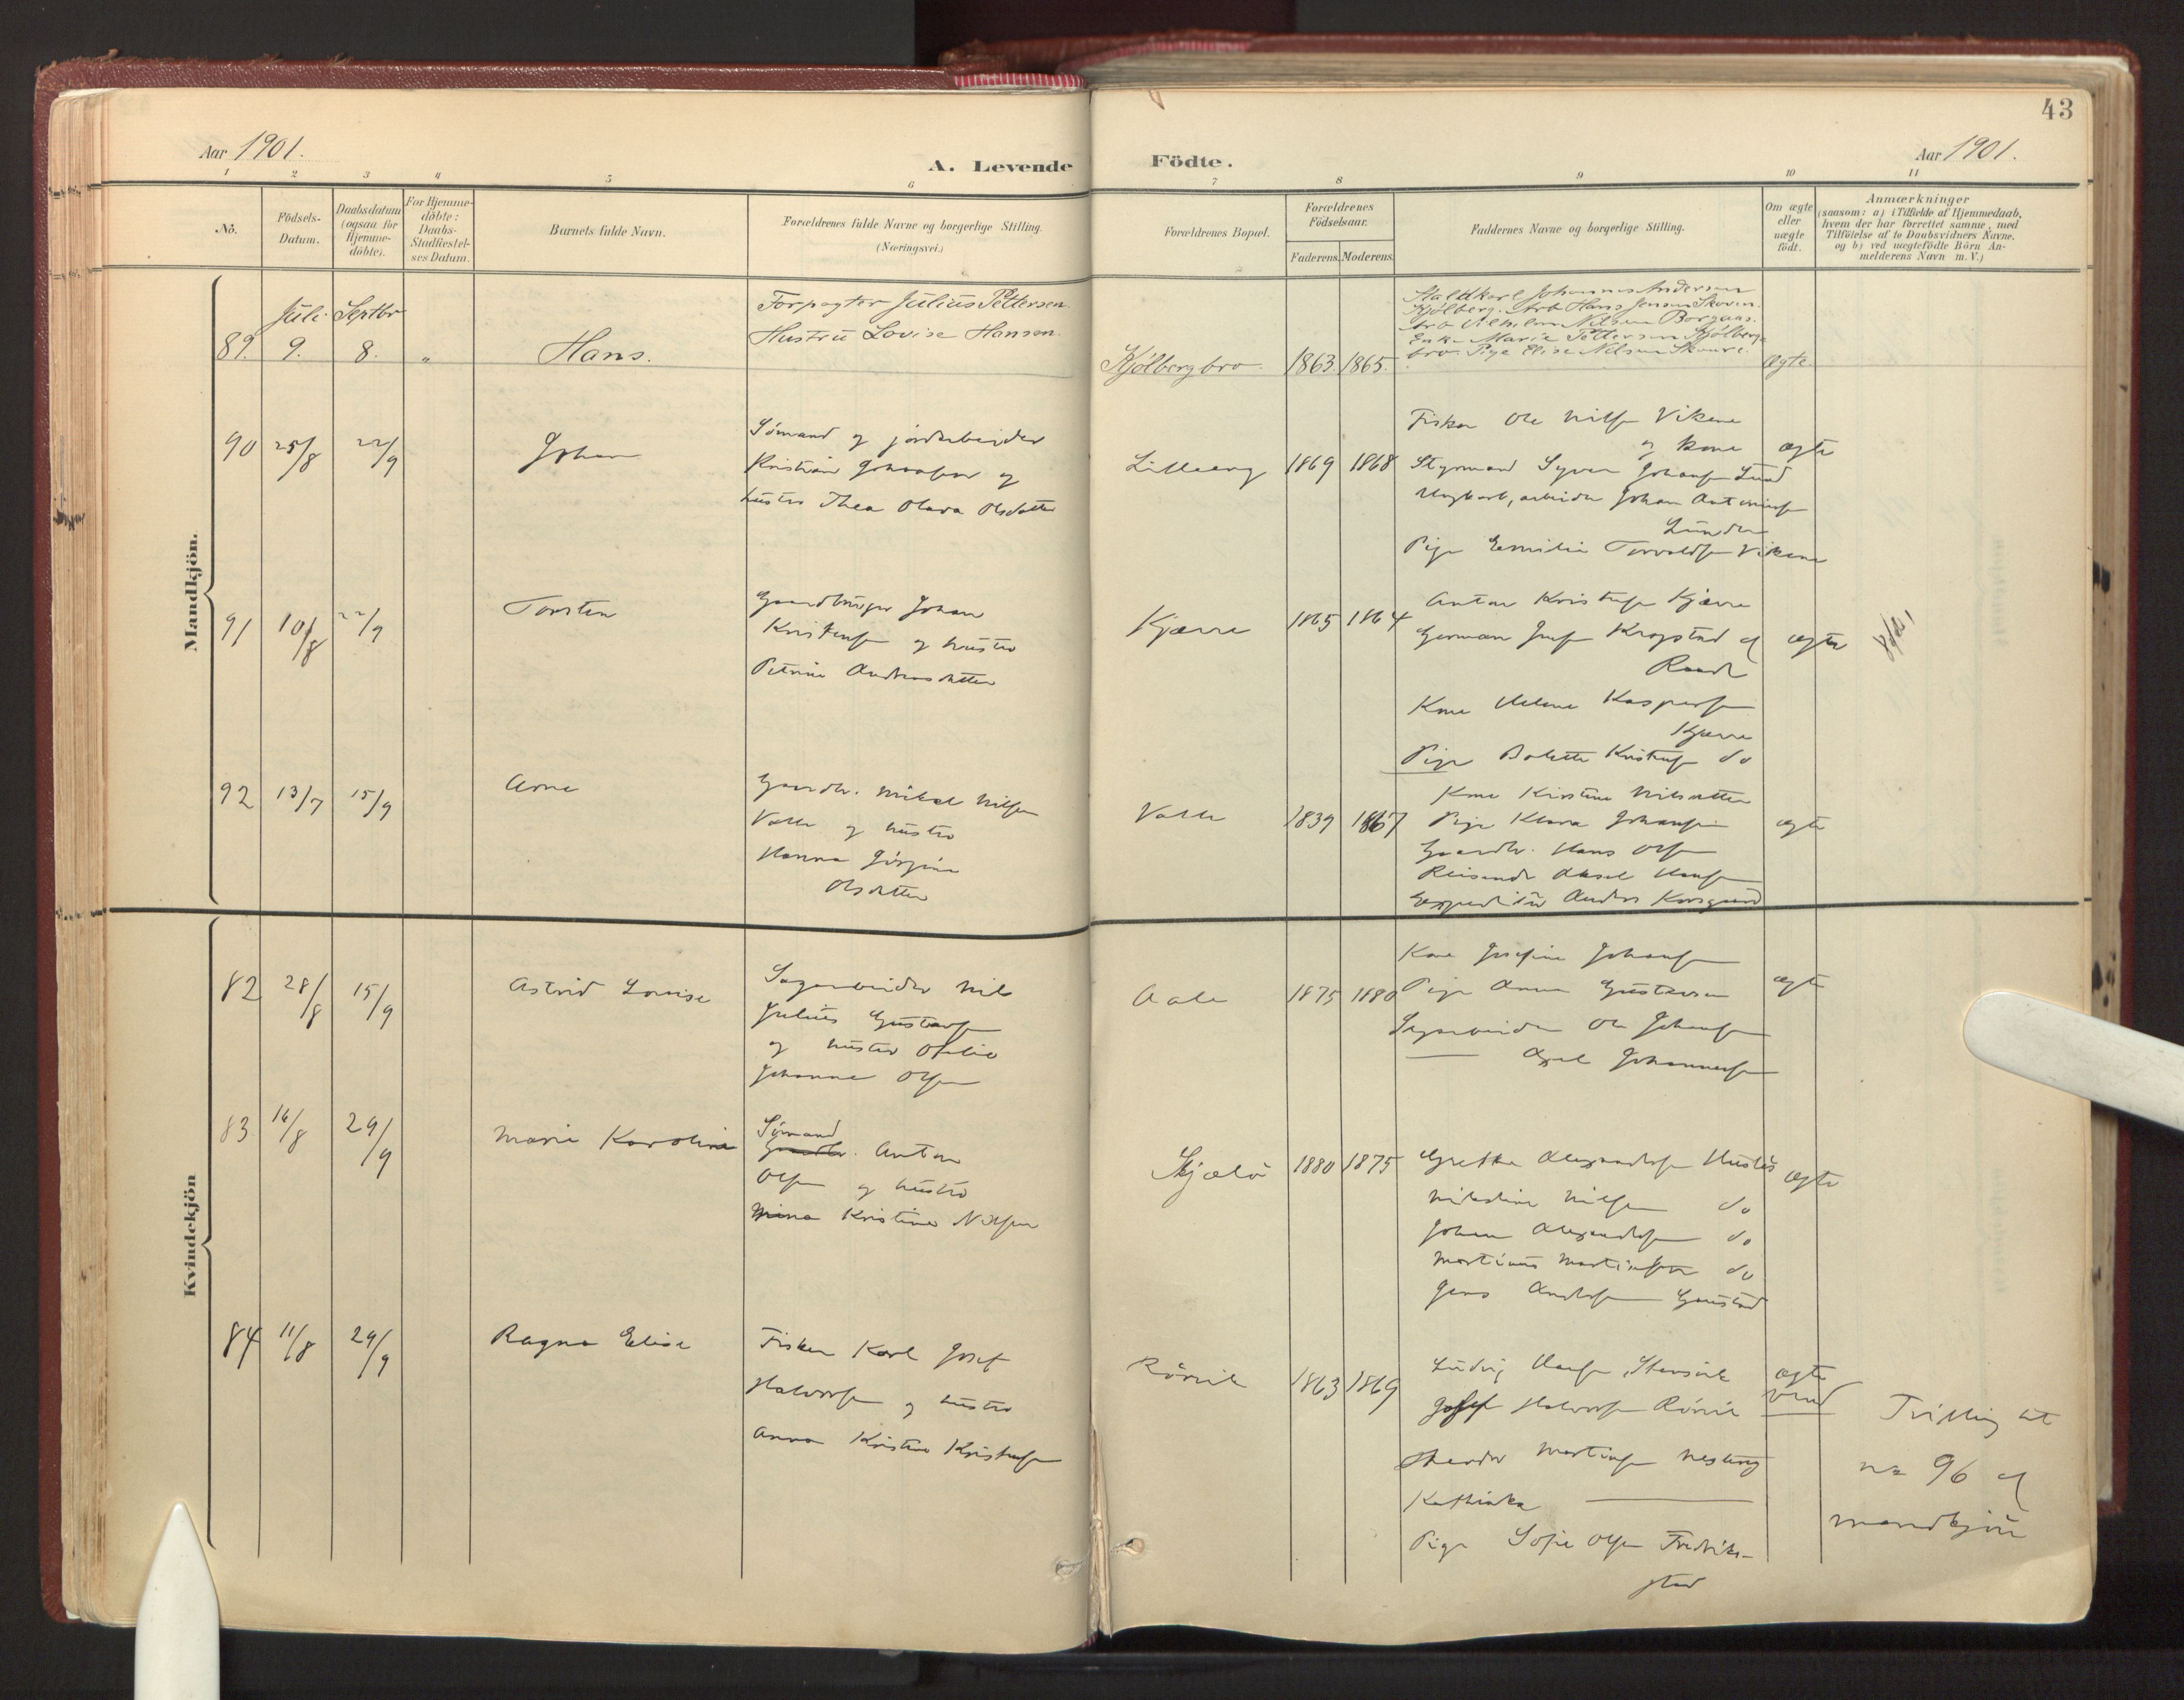 43
Aar 1901.
A. Levende Födte.
Aar 1901.
1 2 3 4 5 6 7 8 9 10 11
No.
Födsels-
Datum.
Daabsdatum
(ogsaa for
Hjemme-
döbte).
For Hjemme-
döbte:
Daabs-
Stadfæstel-
ses Datum.
Barnets fulde Navn.
Forældrenes fulde Navne og borgerlige Stilling.
(Næringsvei.)
Forældrenes Bopæl.
Forældrenes
Födselsaar.
Faderens. Moderens.
Faddernes Navne og borgerlige Stilling.
Om ægte
eller
uægte
födt.
Anmærkninger
(saasom: a) i Tilfælde af Hjemmedaab,
hvem der har forrettet samme, med
Tilföielse af to Daabsvidners Navne,
og b) ved uægtefödte Börn An-
melderens Navn m. V.)
Mandkjön.
Juli Septbr
89. 9. 8. "
Hans.
Forpagter Julius Pettersen.
Hustru Lovise Hansen.
Kjölbergbro. 1863. 1865.
Staldkarl Johannes Andersen
Kjölberg. Arb Hans Jensen Skoven.
Arb Vilhelm Nilsen Borgaas.
Enke Marie Pettersen Kjölberg-
bro. Pige Elise Nilsen Skaare.
Ægte.
90 25/8 22/9
Johan
Sömand og jordarbeider
Kristian Johansen og
hustru Thea Olava Olsdatter
Lilleeng 1869 1868
Fisker Ole Nilsen Vikene
og kone
Styrmand Syver Johansen Lund
Ungkarl, arbeider Johan Antonisen
Lunden
Pige Emilie Torvaldsen Vikene
ægte
91 10/8 22/9
Torsten
Gaardbruger Johan
Kristensen og hustru
Petrine Andreasdatter
Kjærre 1865 1864
Anton Kristensen Kjærre
Herman Krogstad af
Raade
Kone Helene Kaspersen
Kjærre
Pige Bolette Kristensen do
ægte
92 13/7 15/9
Arne
Gaardbr. Mikal Nilsen
Valle og hustru
Hanna Jörgine
Olsdatter
Valle 1839 1867
Kone Kirstine Nilsdatter
Pige Klara Johansen
Gaardbr. Hans Olsen
Reisende Aksel Hansen
Expeditör Anders Korsgaard
ægte
Kvindekjön
82 28/8 15/9
Astrid Lovise
Sagarbeider Nils
Julius Gustavsen
og hustru Otilie
Johanne Olsen
Aale 1875 1880
Kone Josefine Johansen
Pige Anna Gustavsen
Sagarbeider Ole Johansen
— Axel Johannesen
ægte
83 16/8 29/9
Marie Karoline
Sömand
Gaardbr. Anton
Olsen og hustru
Mina Kristine Nilsen
Kjælö 1880 1875
Grethe Alexandersen
Nikoline Nilsen do
Johan Alexandersen do
Martinus Martinsen do
Jens Andersen
ægte
84 11/8 29/9
Ragna Elise
Fisker Karl Josef
Halvorsen og hustru
Anna Kristine Kristensen
Rörvik 1863 1869
Ludvig Hansen Stensvik
Josef Halvorsen Rörvik
Martinsen Nesteng
Kathinka —
Pige Sofie Olsen Fredrik-
stad
ægte
Tvilling til
no 96 af
mandkjön